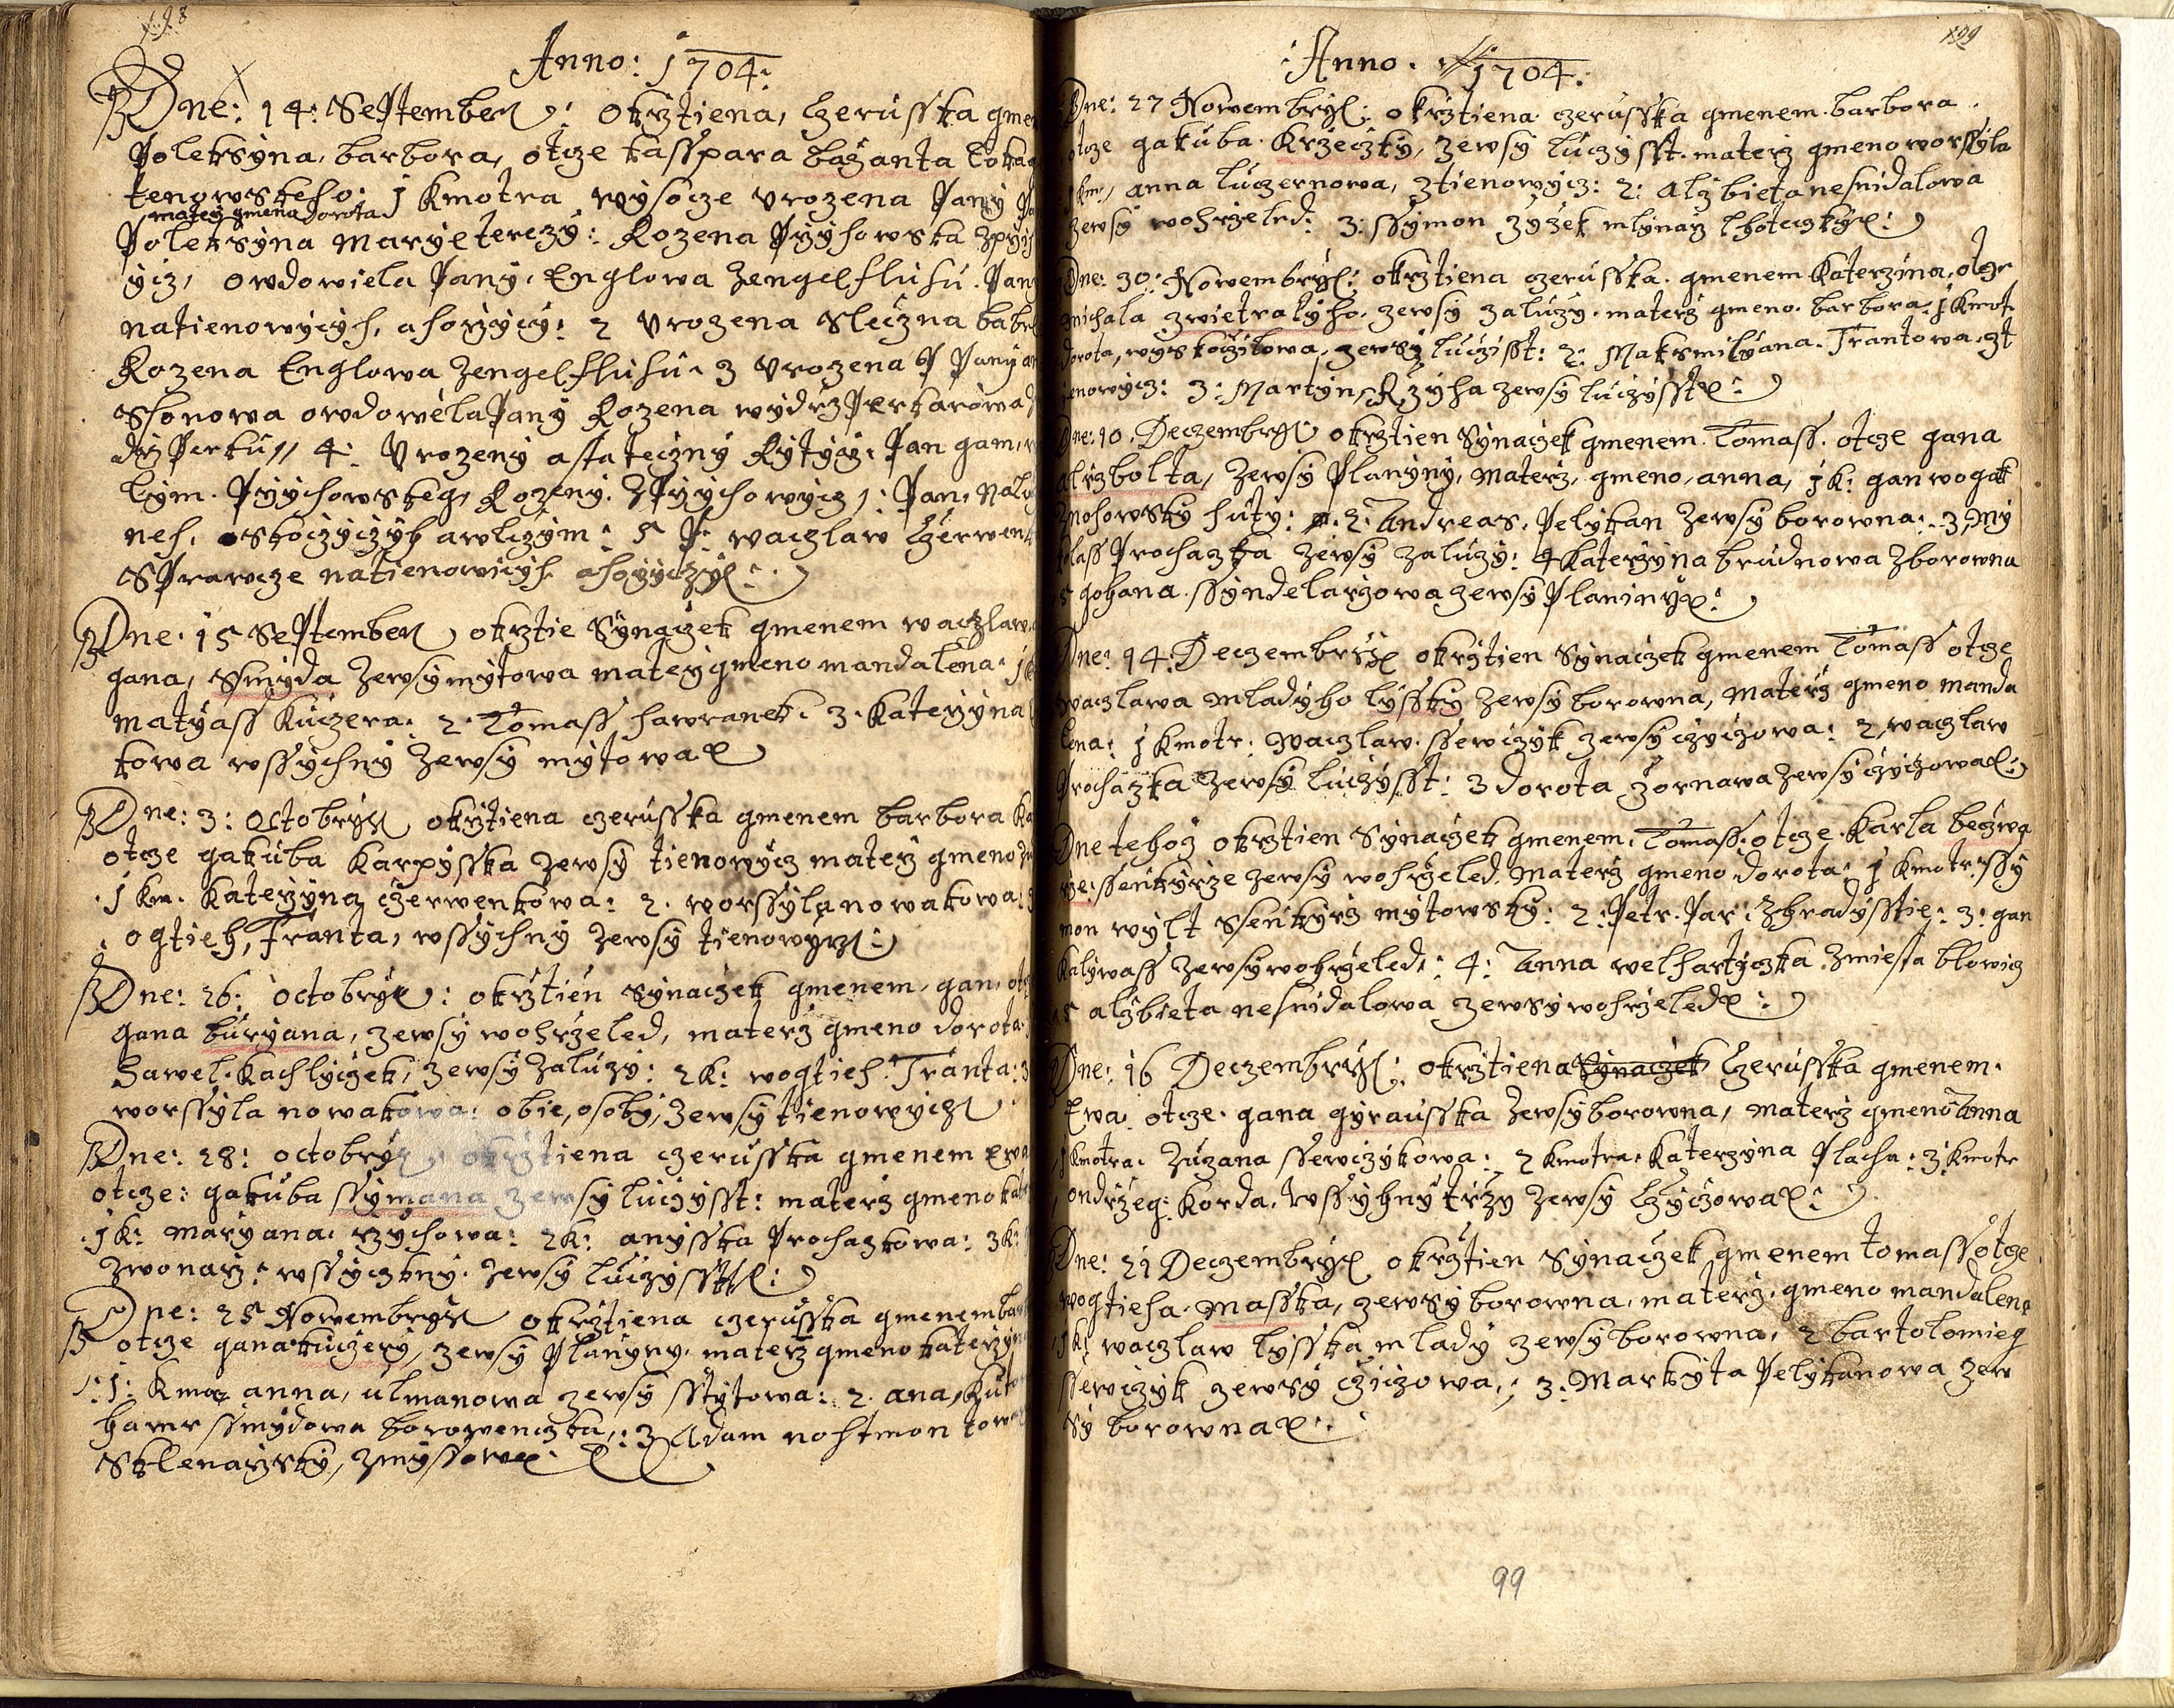 198
Anno: 1704:
Dne: 14: September: okrztiena, czerusska gmen
Poleksyna, barbora, otcze kasspara bažanta loka
tenowskeho: 1 kmotra wysocze urozena Pany
matey gmena dorota
Poleksyna Maryeterezy: Rozena Przychowska
ycz, owdowiela Pany, Englowa zengelfluhu. Pany
natienowyczych, ahorzyczy: 2 Urozena Sleczna babr
Rozena Englowa zengelfluhu: 3 Urozena P Pany an
Sfonowa owdowela Pany Rozena wydrzPerkarowa
drzPerku, 4: Urozeny astateczny Rytyrz. Pan gam, w
lym. Przychowskeg, Rozeny. zPrzychowycz, Pan, Nalu
neh, oskoczyczyh awlczym: 5 P: waczlaw Czerwenk
Sprawcze natienowiczych ahorzyczych:
Dne. 15 September okrztie Synaczek gmenem waczlaw
gana, Smyda zewsymytowa materz gmeno mandalena: 1
matyass kuczera: 2. Tomass hawranek: 3. katerzyna
kowa wssychny zewsy mytowa
Dne: 3: Octobrys okrztiena czerusska gmenem barbora ka
otcze gakuba karpysska zewsy tienowycz materz gmeno
1 Km. Katerzyna czerwenkowa: 2. worssyla nowakowa:
ogtieh, Franta, wssychny zewsy tienowycz:
Dne: 26: octobrys: okrztien synaczek gmenem, gan, ot
gana buryana, zewsy wohrzeled, materz gmeno dorota:
hawel. Kachlyczek, zewsy zaluzy: 2 k: wogtieh: Franta: 3
worssyla nowakowa: obie, osoby, zewsy tienowycz
Dne: 28: octobrys okrztiena czerusska gmenem Ewa
otcze: gakuba ssymana zewsy luczysst: materz gmeno kat
1 k: maryana: rzychowa: 2 k: anysska Prochazkowa: 3 k:
zwonarz: wssyczkny. zewsy luczysst:
Dne: 25 Nowembrys okrztiena czerusska gmenem bar
otcze gana kuczery, zewsy Planyny. materz gmeno katerzyn
1: kmo: anna, ulmanowa zewsy sstytowa: 2. ana, kut
hamr ssmydowa borowenczka,: 3 Adam nohtmon tow
Sklenarzsky, zmyssow
199
Anno. 1704:
Dne: 27 Nowembrys: okrztiena czerusska gmenem barbora.
otcze gakuba. krzeczky, zewsy luczysst. materz gmeno worssyla
km, anna luczernowa, ztienowycz: 2: alzbieta nesnidalowa
zewsy wohrzeled: 3: ssymon zyzek mlynarz lhoteczky:
Dne: 30: Nowembrys: okrztiena czerusska. gmenem katerzina, otcze
michala zwietratyho. zewsy zaluzy. materz gmeno. barbora: 1 kmot.
dorota, wyskoczilowa, zewsy luczisst: 2: Maksmilyana. Frantowa, zt
ienowycz: 3: Martyn, Rzyha zewsy luczysst:
Dne: 10. Deczembrys okrztien Synaczek gmenem. Tomass. otcze gana
alrzbolta, zewsy Planyny, Materz, gmeno, anna, 1 k: gan wogak
znohowsky huty: 2. Andreas. Pelykan zewsy borowna: 3, my
klass Prochazka zewsy zaluzy: 4 katerzyna brudnowa zborowna
5 gohana. ssyndelarzowa zewsy Planiny:
Dne: 14. Deczembrys okrztien Synaczek gmenem Tomass otcze
waczlawa mladyho lyssky zewsy borowna, Materz gmeno manda
lena: 1 kmotr: Waczlaw. ssewczyk zewsy czyczowa: 2, waczlaw
Prochazka zewsy luczysst: 3 dorota zornawa zewsy czyczowa:
Dne tehoz okrztien Synaczek gmenem, Tomass. otcze karla beczwa
rze: ssenkyrze zewsy wohrzeled. Materz gmeno dorota: 1 kmotr. ssy
mon wylt ssenkyrz mytowsky: 2: Petr. Par: zhradysstie: 3: gan
kalywass zewsy wohrzeled,: 4: Anna welhartyczka zmiesta blowicz
5 alzbieta nesnidalowa zewsy wohrzeled:
Dne: 16 Deczembrys: okrztiena Synaczek Czerusska gmenem.
Ewa. otcze. gana gyrausska zewsy borowna, materz gmeno Anna
1 kmotra. Zuzana ssewczykowa: 2 kmotra. katerzyna Placha: 3 kmotr
, ondrzeg: korda. wssyhny trzy zewsy Czyczowa:
Dne: 21 Deczembrys okrztien Synaczek gmenem tomass otcze
wogtieha. Masska, zewsy borowna, materz. gmeno mandalena
1 k: waczlaw lysska mlady zewsy borowna, 2 bartolomieg
ssewczyk zewsy cziczowa,: 3: Markyta Pelykanowa zew
sy borowna:
99